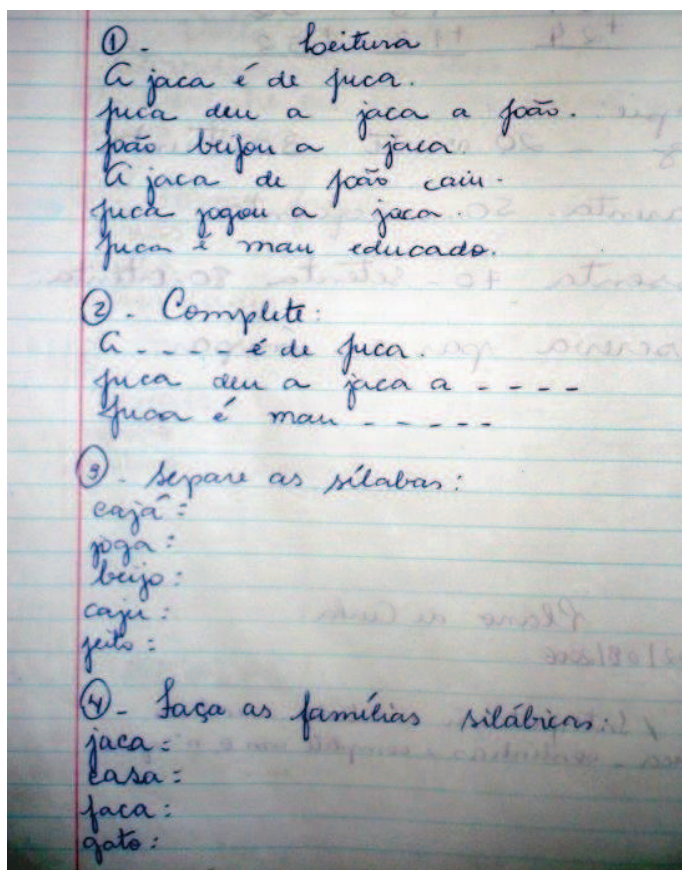 ①. Leitura
A jaca é de juca.
juca deu a jaca a joão.
joão beijou a jaca.
A jaca de joão caiu.
juca jogou a jaca.
juca é mau educado.
②. Complete:
A - - - - é de juca.
juca deu a jaca a - - - -
juca é mau - - - - -
③. Separe as sílabas:
cajá:
joga:
beijo:
caju:
jeito:
④- Faça as famílias silábicas:
jaca:
casa:
faca:
gato: